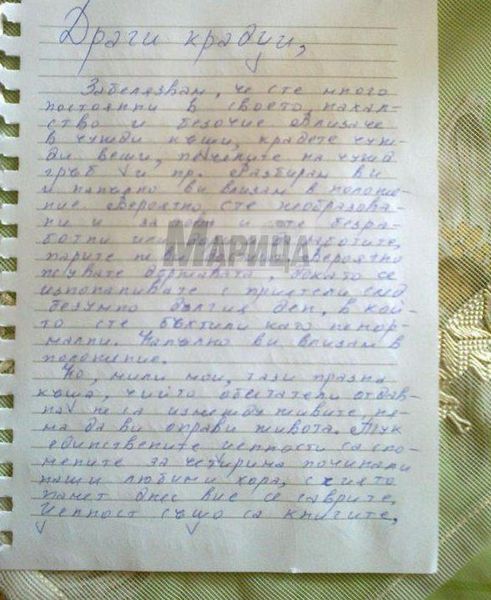 Драги крадци,
Забелязвам, че сте много
постоянни в своето нахал-
ство и безочие влизане
в чужди къщи, крадете чуж-
ди вещи, печелите на чужд
гръб и пр. Разбирам ви
и напълно ви влизам в положе-
ние. Вероятно сте необразова-
ни и затова и сте безра-
ботни или работите,
парите не Вероятно
псувате държавата, докато се
изпонапивате с приятели след
безумно дългия ден, в кой-
то сте бъхтили като ненор-
мални. Напълно ви влизам в
положение.
Но, мили мои, тази празна
къща, чиито обитатели отдав-
на не са измежду живите, ня-
ма да ви оправи живота. Тук
единствените ценности са спо-
мените за четирима починали
наши любими хора, с чиято
памет днес вие се гаврите.
Ценност също са книгите,
Марица